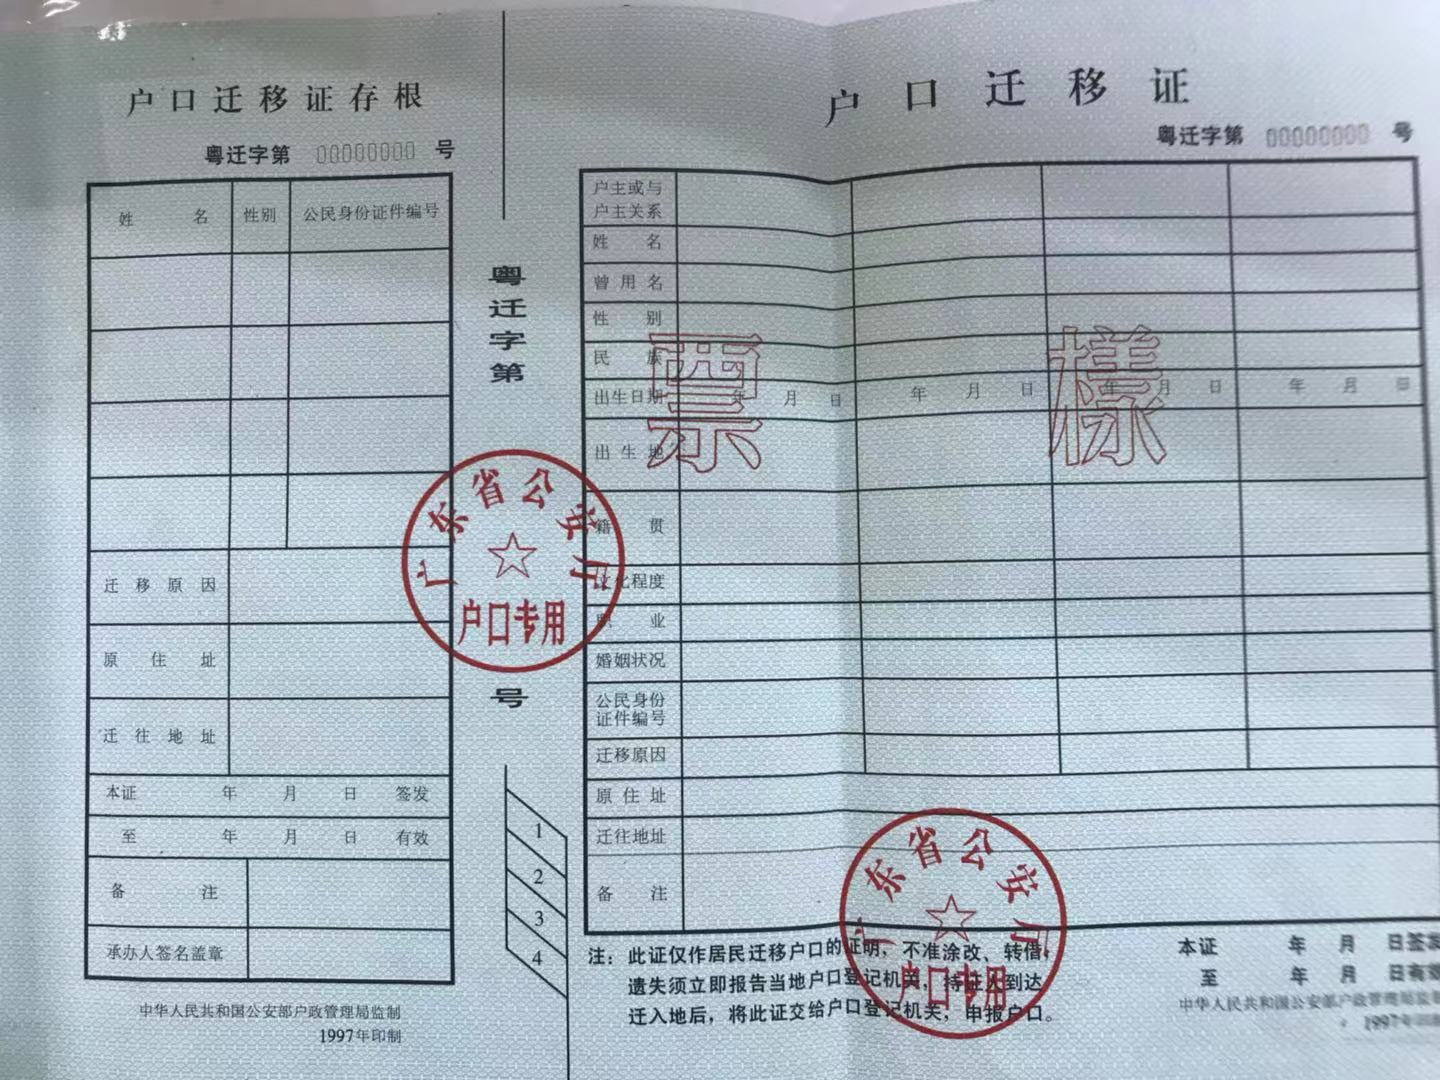 户口迁移证存根
粤迁字第 00000000 号
姓名 性别 公民身份证件编号
迁移原因
原住址
迁往地址
本证 年 月 日 签发
至 年 月 日 有效
备注
承办人签名盖章
中华人民共和国公安部户政管理局监制
1997年印制
粤迁字第
号
广东省公安厅
户口专用
1
2
3
4
户口迁移证
粤迁字第 00000000 号
户主或与
户主关系
姓名
曾用名
性别
民族
出生日期 年 月 日 年 月 日 年 月 日 年 月 日
出生地
籍贯
文化程度
职业
婚姻状况
公民身份
证件编号
迁移原因
原住址
迁往地址
备注
票樣
广东省公安厅
户口专用
注：此证仅作居民迁移户口的证明，不准涂改、转借，
遗失须立即报告当地户口登记机关，持证人到达
迁入地后，将此证交给户口登记机关，申报户口。
本证 年 月 日签发
至 年 月 日有效
中华人民共和国公安部户政管理局监制
1997年印制